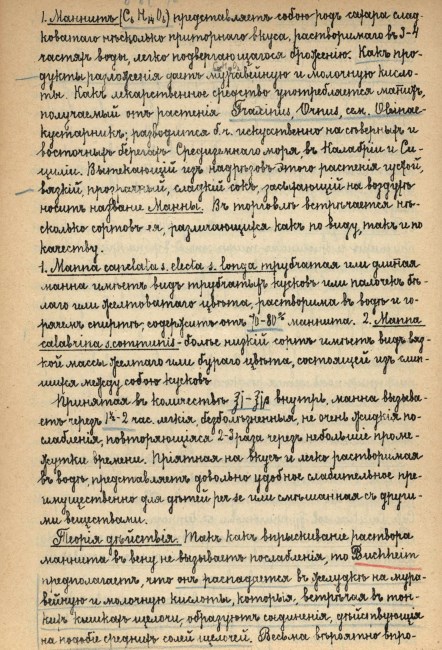 1. Маннитъ (C₆ H₁₄ O₆) представляетъ собою родъ сахара слад-
коватаго нѣсколько приторнаго вкуса, растворимаго въ 3-4
частяхъ воды, легко подвергающагося броженію. Какъ про-
дукты разложенія даетъ муравейную и молочную кисло-
ты. Какъ лекарственное средство употребляется маннитъ,
получаемый отъ растенія Fraxinus, Ornus, сем. Oleinae-
кустарникъ; разводится б.ч. искусственно на сѣверныхъ и
восточныхъ берегахъ Средиземнаго моря, въ Калабріи и Си-
циліи. Вытекающій изъ надрѣзовъ этого растенія густой,
вязкій, прозрачный, сладкій сокъ, засыхающій на воздухѣ
носитъ названіе Манны. Въ торговлѣ встрѣчается нѣ-
сколько сортовъ ея, различающихся какъ по виду, такъ и по
качеству.
1. Manna canelata s. electa s. longa трубчатая или длинная
манна имѣетъ видъ трубчатыхъ кусковъ или палочекъ бѣ-
лаго или желтоватаго цвѣта, растворима въ водѣ и го-
рячемъ спиртѣ; содержитъ отъ 70-80% маннита. 2. Manna
calabrina s. communis - болѣе низкій сортъ имѣетъ видъ вяз-
кой массы желтаго или бураго цвѣта, состоящей изъ слип-
шихся между собою кусковъ
Принятая въ количествѣ ʒj - ʒjβ внутрь, манна вызыва-
етъ черезъ 1½-2 час. легкія, безболѣзненныя, не очень жидкія по-
слабленія, повторяющіяся 2-3 раза черезъ небольшіе проме-
жутки времени. Пріятная на вкусъ и легко растворимая
въ водѣ, представляетъ довольно удобное слабительное пре-
имущественно для дѣтей per se или смѣшанная съ други-
ми веществами.
Теорія дѣйствія. Такъ какъ впрыскиваніе раствора
маннита въ вену не вызываетъ послабленія, то Buchheim
предполагаетъ, что онъ распадается въ желудкѣ на мура-
вейную и молочную кислоты, которыя, встрѣчая въ тон-
кихъ кишкахъ щелочи, образуютъ соединенія, дѣйствующія
на подобіе среднихъ солей щелочей. Весьма вѣроятно впро-